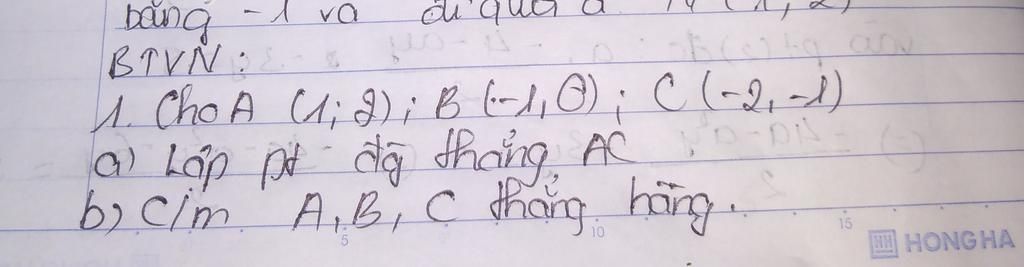 bằng -1 và đi qua
BTVN:
1. Cho A (1; 2); B (-1, 0); C (-2, -1)
a) Lập pt đg thẳng AC.
b) C/m A, B, C thẳng hàng.
5 10 15
HH HONG HA